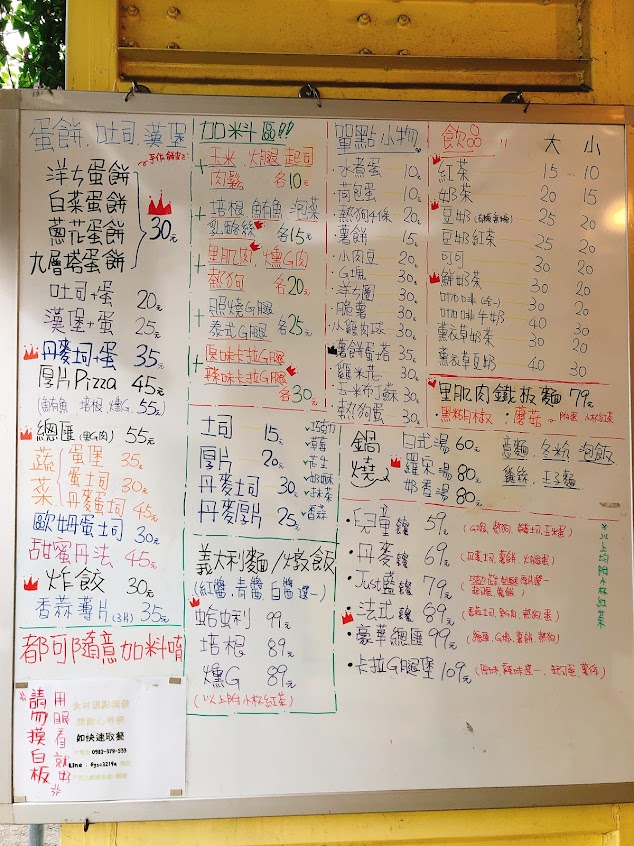 蛋餅.吐司.漢堡
手作餅皮
洋ち蛋餅
白菜蛋餅
蔥花蛋餅
九層塔蛋餅
30元
吐司+蛋 20元
漢堡+蛋 25元
丹麥土司+蛋 35元
厚片Pizza 45元
(鮪魚 培根.燻G. 55元)
總匯(里G肉) 55元
蔬菜
蛋堡 35元
蛋土司 30元
丹麥蛋土司 45元
歐姆蛋土司 30元
甜蜜丹法 45元
炸餃 30元
香蒜薄片(3片) 35元
都可隨意加料唷
請勿摸白板
用眼看就出
如快速取餐
加料區!!
+玉米 火腿 起司
肉鬆 各10元
+培根.鮪魚 泡菜
乳酪絲 各15元
+里肌肉.燻G肉
熱狗 各20元
+照燒G腿
泰式G腿 各25元
+原味卡拉G腿
辣味卡拉G腿
各30元
土司 15元
厚片 20元
丹麥土司 30元
丹麥厚片 25元
✓巧克力
✓草莓
✓花生
✓奶酥
✓抹茶
✓香蒜
義大利麵/燉飯
(紅醬.青醬 白醬 選一)
蛤蜊 99元
培根 89元
燻G 89元
(以上附小杯紅茶)
單點小物
·水煮蛋 10元
·荷包蛋 10元
·熱狗4條 20元
·薯餅 15元
·小肉豆 20元
·G塊 30元
·洋ち圈 30元
·脆薯 30元
·小雞肉球 30元
·薯餅蛋塔 35元
·雞米花 30元
·熱狗蛋 30元
飲品!! 大 小
紅茶 15 10
奶茶 20 15
豆奶 25 20
豆奶紅茶 25 20
可可 30 20
鮮奶茶 30 20
咖啡 30 20
咖啡牛奶 40 30
薰衣草奶茶 30 20
薰衣草豆奶 40 30
里肌肉鐵板麵 79元
黑胡椒.蘑菇。附蛋.小杯紅茶
鍋燒
日式湯 60元
羅宋湯 80元
奶香湯 80元
意麵.冬粉.泡飯
雞絲.王子麵
·兒童餐 59元
·丹麥餐 69元
·Just藍餐 79元
·法式餐 89元
·豪華總匯 99元
·卡拉G腿堡 109元
*以上均附小杯紅茶